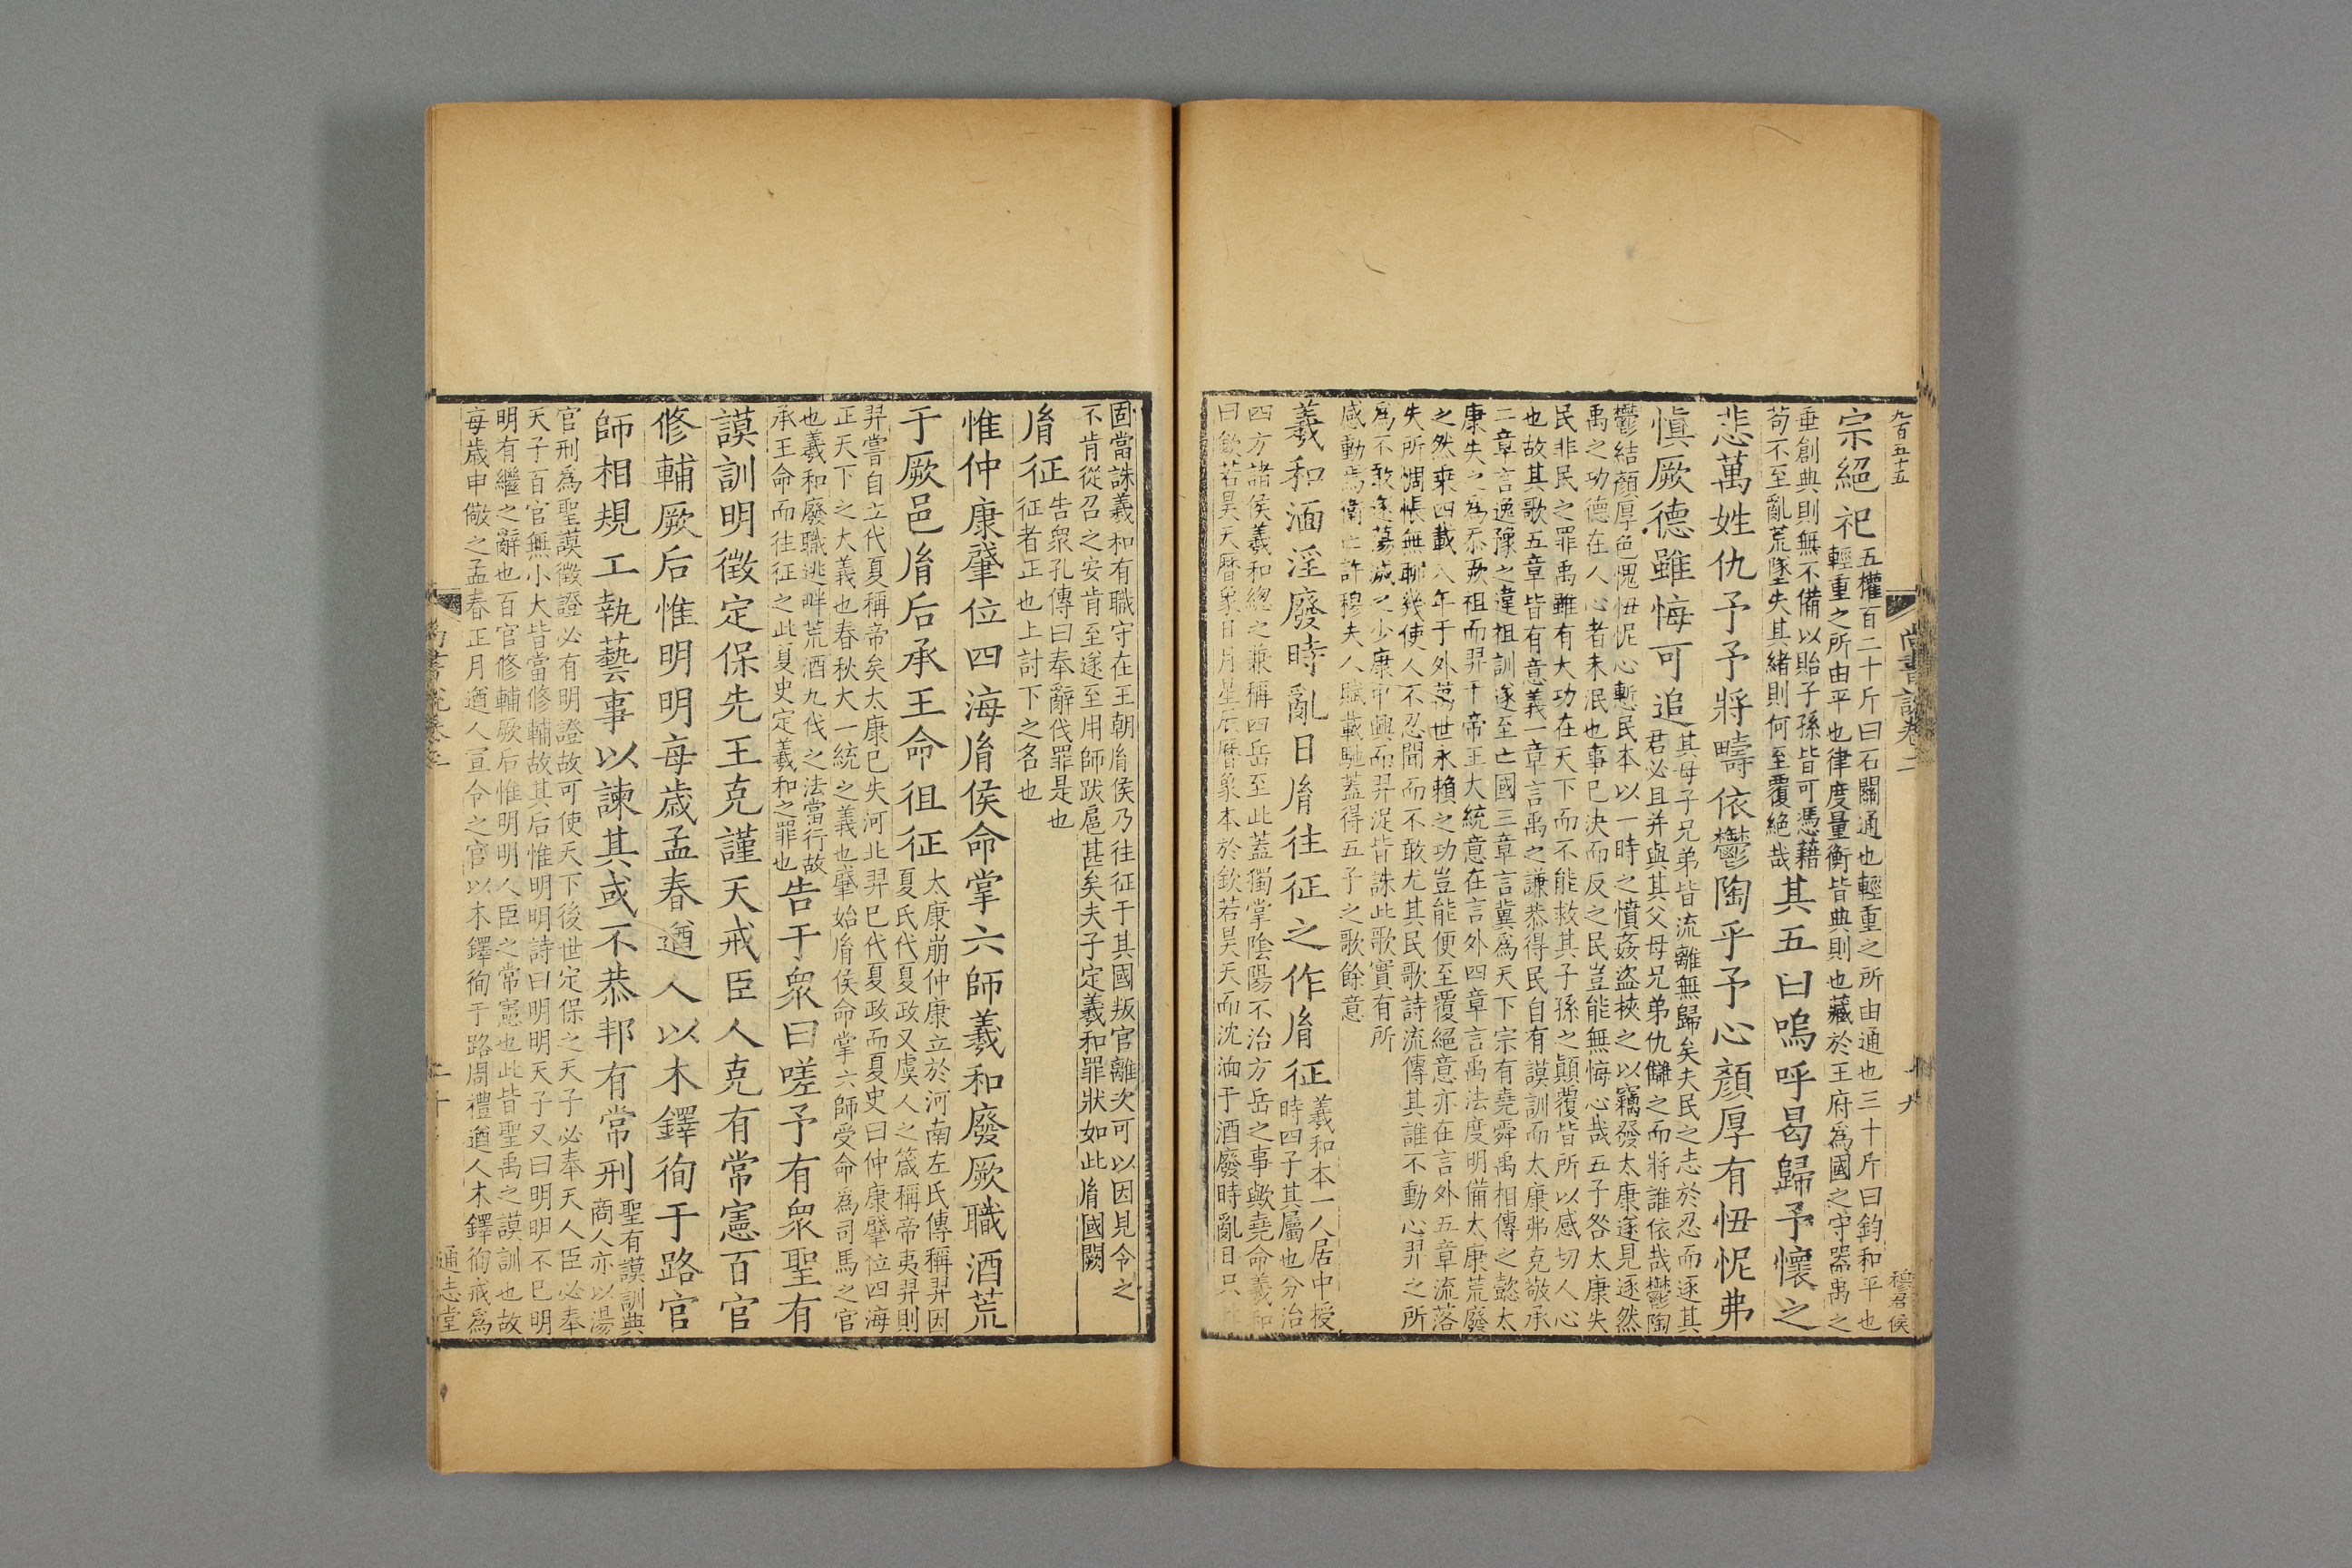 九百五十五
尚書說卷二
十九
穆君侯
宗絕祀五權百二十斤曰石關通也輕重之所由通也三十斤曰鈞和平也
輕重之所由平也律度量衡皆典則也藏於王府爲國之守器禹之
垂創典則無不備以貽子孫皆可憑藉
苟不至亂荒墜失其緒則何至覆絕哉其五曰嗚呼曷歸予懷之
悲萬姓仇予予將疇依鬱陶乎予心顏厚有忸怩弗
愼厥德雖悔可追其母子兄弟皆流離無歸矣夫民之志於忍而逐其
君必且并與其父母兄弟仇讎之而將誰依哉鬱陶
鬱結顏厚色愧忸怩心慙民本以一時之憤姦盗挾之以竊發太康遂見逐然
禹之功德在人心者未泯也事已決而反之民豈能無悔心哉五子咎太康失
民非民之罪禹雖有大功在天下而不能救其子孫之顚覆皆所以感切人心
也故其歌五章皆有意義一章言禹之謙恭得民自有謨訓而太康弗克敬承
二章言逸豫之違祖訓遂至亡國三章言冀爲天下宗有堯舜禹相傳之懿太
康失之爲忝厥祖而羿干帝王大統意在言外四章言禹法度明備太康荒廢
之然乘四載八年于外萬世永賴之功豈能便至覆絕意亦在言外五章流落
失所惆悵無聊幾使人不忍聞而不敢尤其民歌詩流傳其誰不動心羿之所
爲不敢遂蕩滅之少康中興而羿浞皆誅此歌實有所
感動焉衞亡許穆夫人賦載馳蓋得五子之歌餘意
羲和湎淫廢時亂日胤往征之作胤征羲和本一人居中授
時四子其屬也分治
四方諸侯羲和總之兼稱四岳至此蓋獨掌陰陽不治方岳之事歟堯命羲和
曰欽若昊天曆象日月星辰曆象本於欽若昊天而沈湎于酒廢時亂日只
固當誅羲和有職守在王朝胤侯乃往征于其國叛官離次可以因見令之
不肯從召之安肯至遂至用師跋扈甚矣夫子定羲和罪狀如此胤國闕
胤征告衆孔傳曰奉辭伐罪是也
征者正也上討下之名也
惟仲康肇位四海胤侯命掌六師羲和廢厥職酒荒
于厥邑胤后承王命徂征太康崩仲康立於河南左氏傳稱羿因
夏氏代夏政又虞人之箴稱帝夷羿則
羿嘗自立代夏稱帝矣太康已失河北羿巳代夏政而夏史曰仲康肇位四海
正天下之大義也春秋大一統之義也肇始胤侯命掌六師受命爲司馬之官
也羲和廢職逃畔荒酒九伐之法當行故
承王命而往征之此夏史定羲和之罪也告于衆曰嗟予有衆聖有
謨訓明徵定保先王克謹天戒臣人克有常憲百官
修輔厥后惟明明每歲孟春遒人以木鐸徇于路官
師相規工執藝事以諫其或不恭邦有常刑聖有謨訓典
商人亦以湯
官刑爲聖謨徵證必有明證故可使天下後世定保之天子必奉天人臣必奉
天子百官無小大皆當修輔故其后惟明明詩曰明明天子又曰明明不巳明
明有繼之辭也百官修輔厥后惟明明人臣之常憲也此皆聖禹之謨訓也故
每歲申儆之孟春正月遒人宣令之官以木鐸徇于路周禮遒人木鐸徇戒爲
尚書說卷二
二十
通志堂